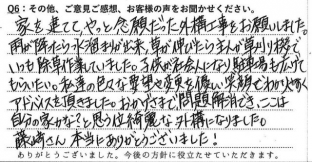 Q6:その他、ご意見ご感想、お客様の声をお聞かせください。
家を建て、やっと念願だった外構工事をお願いしました。
雨が降ったら水溜まりが出来、草が伸びたら主人が草刈り機で
いつも除草作業していました。子供が社会人になり駐車場も広げて
もらいたい。私達の色々な要望や変更を優しい笑顔でわかりやすく
アドバイスを頂きました。おかげさまで問題解消でき、ここは
自分の家かな?と思う位綺麗な外構になりました。
藤崎さん 本当にありがとうございました!
ありがとうございました。今後の方針に役立たせていただきます。